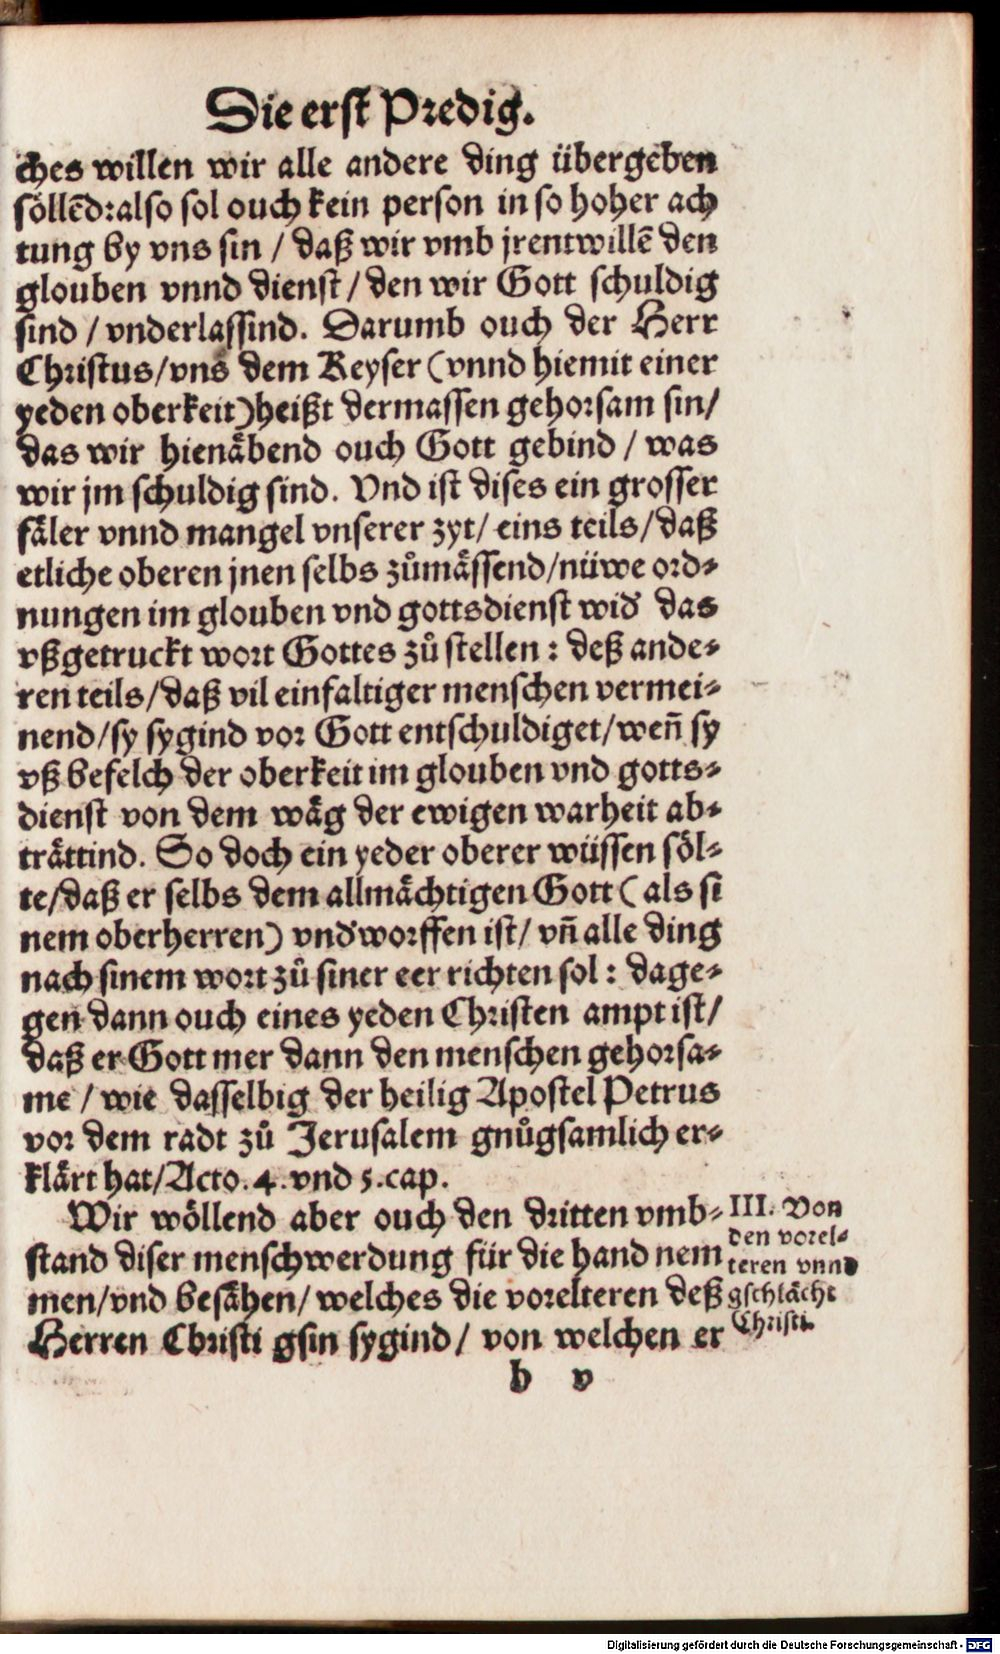 Die erst Predig.
ches willen wir alle andere ding übergeben
söllẽd: also sol ouch kein person in so hoher ach
tung by vns sin / daß wir vmb jrentwillẽ den
glouben vnnd dienst / den wir Gott schuldig
sind / vnderlassind. Darumb ouch der Herr
Christus/vns dem Keyser (vnnd hiemit einer
yeden oberkeit) heißt dermassen gehorsam sin/
das wir hienäbend ouch Gott gebind / was
wir jm schuldig sind. Vnd ist dises ein grosser
fäler vnnd mangel vnserer zyt/ eins teils/daß
etliche oberen jnen selbs zůmässend/nüwe ord-
nungen im glouben vnd gottsdienst wid' das
vßgetruckt wort Gottes zů stellen : deß ande-
ren teils/daß vil einfaltiger menschen vermei-
nend/sy sygind vor Gott entschuldiget/weñ sy
vß befelch der oberkeit im glouben vnd gotts-
dienst von dem wäg der ewigen warheit ab-
trättind. So doch ein yeder oberer wüssen söl-
te/daß er selbs dem allmächtigen Gott ( als si
nem oberherren) vnd'worffen ist/ vñ alle ding
nach sinem wort zů siner eer richten sol : dage-
gen dann ouch eines yeden Christen ampt ist/
daß er Gott mer dann den menschen gehorsa-
me / wie dasselbig der heilig Apostel Petrus
vor dem radt zů Jerusalem gnůgsamlich er-
klärt hat/Acto. 4. vnd 5. cap.
Wir wöllend aber ouch den dritten vmb-
stand diser menschwerdung für die hand nem
men/vnd besähen/ welches die vorelteren deß
Herren Christi gsin sygind/ von welchen er
III. Von
den vorel-
teren vnnd
gschlächt
Christi.
b v
Digitalisierung gefördert durch die Deutsche Forschungsgemeinschaft - DFG